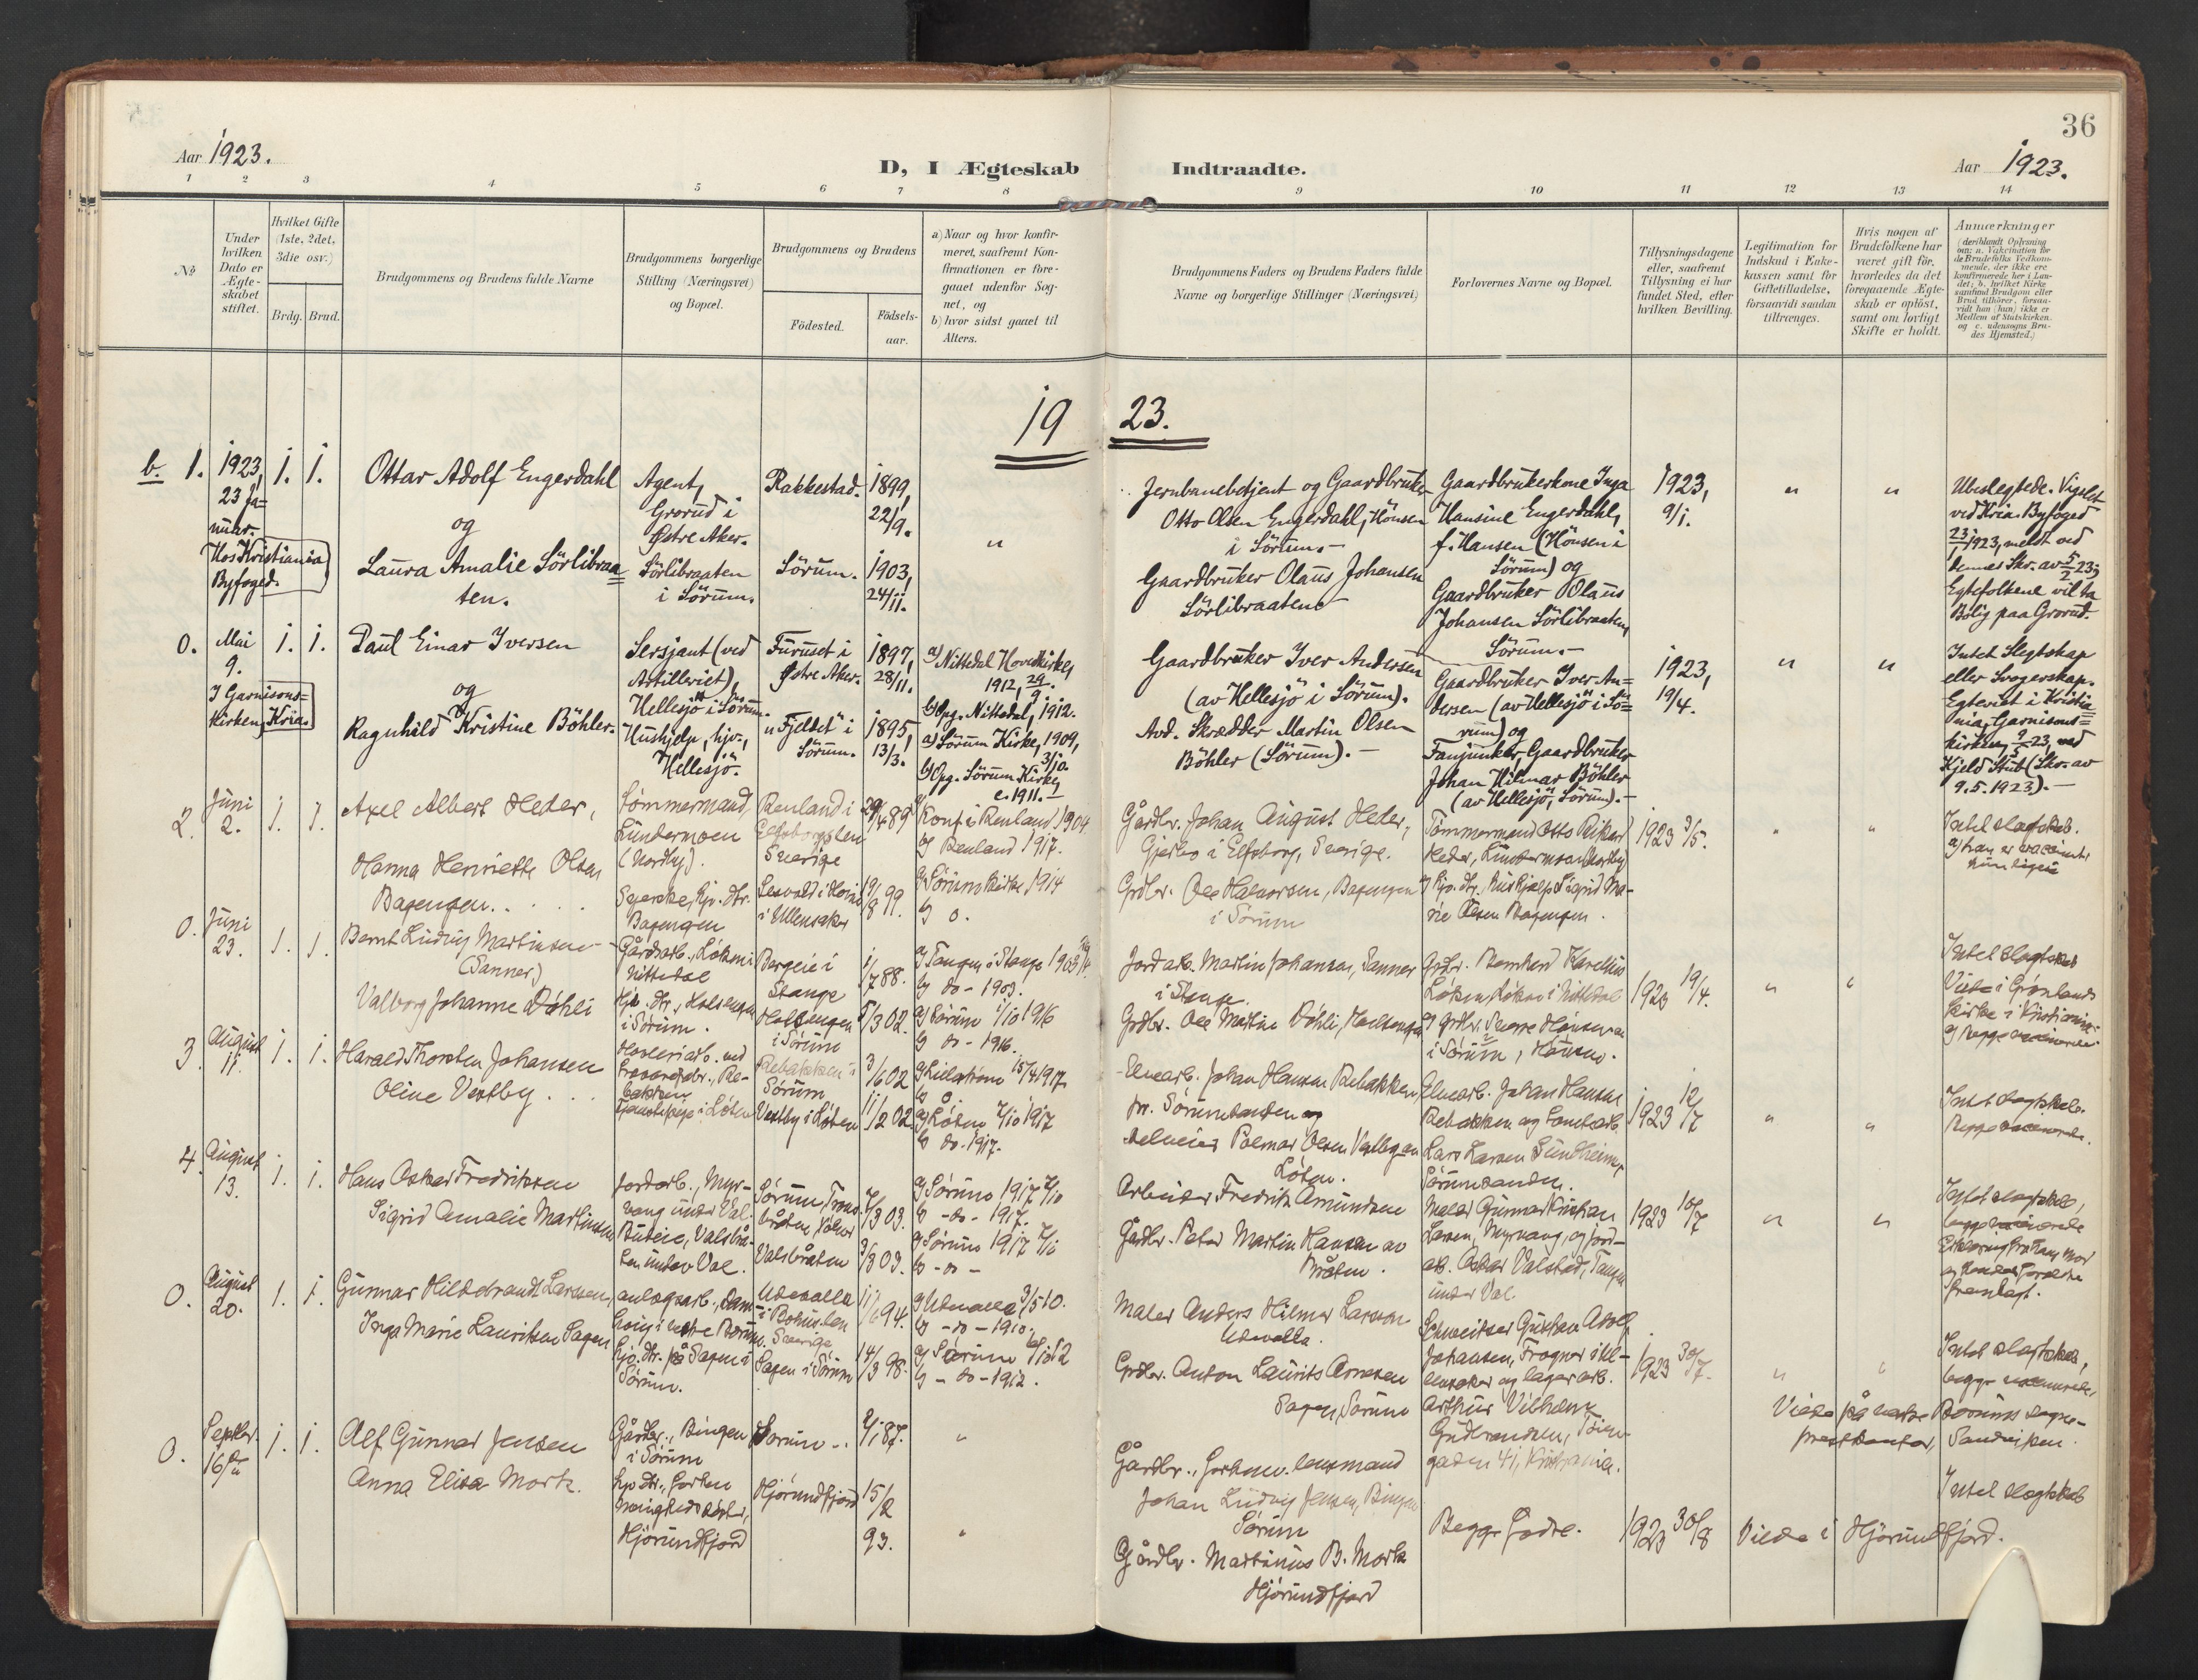 36
Aar 1923.
D, I Ægteskab Indtraadte.
Aar 1923.
1 2 3 4 5 6 7 8 9 10 11 12 13 14
No
Under hvilken Dato er Ægteskabet stiftet.
Hvilket Gifte (1ste, 2det, 3die osv.)
Brdg. Brud.
Brudgommens og Brudens fulde Navne
Brudgommens borgerlige Stilling (Næringsvei) og Bopæl.
Brudgommens og Brudens
Födested.
Födsels-aar.
a) Naar og hvor konfir-
meret, saafremt Kon-
firmationen er fore-
gaaet udenfor Sog-
net, og
b) hvor sidst gaaet til
Alters.
Brudgommens Faders og Brudens Faders fulde
Navne og borgerlige Stillinger (Næringsvei)
Forlovernes Navne og Bopæl.
Tillysningsdagene
eller, saafremt
Tillysning ei har
fundet Sted, efter
hvilken Bevilling.
Legitimation for
Indskud i Enke-
kassen samt for
Giftetilladelse,
forsaavidt saadan
tiltrænges.
Hvis nogen af
Brudefolkene har
været gift för,
hvorledes da det
foregaaende Ægte-
skab er oplöst,
samt om lovligt
Skifte er holdt.
Anmærkninger
(deriblandt Oplysning
om: a. Vakcination for
de Brudefolks Vedkom-
mende, der ikke ere
konfirmerede her i Lan-
det; b. hvilket Kirke
samfund Brudgom eller
Brud tilhörer, forsaa-
vidt han (hun) ikke er
Medlem af Statskirken.
og c. udensogns Bru-
des Hjemsted.)
1923.
b. 1. 1923, 23 Ja-
nuar.
Hos Kristiania
Byfoged.
1. 1.
Ottar Adolf Engerdahl
og
Laura Amalie Sörlibraa=
ten.
Agent,
Grorud i
Østre Aker.
Sörlibraaten
i Sörum.
Rakkestad.
Sörum.
1899,
22/9.
1903,
24/11.
"
Jernbanebetjent og Gaardbruker
Otto Olsen Engerdahl, Hönsen
i Sörum.-
Gaardbruker Olaus Johansen
Sörlibraaten-
Gaardbrukerkone Inga
Hansine Engerdahl,
f. Hansen (Hönsen i
Sörum) og
Gaardbruker Olaus
Johansen Sörlibraaten,
Sörum.-
1923,
9/1.
" "
Ubeslegtede. Vigslet
ved Kria. Byfoged
23/1 1923, meldt ved
dennes Skr. av 5/2 23;
Egtefolkene vil ta
Bolig paa Grorud.
0. Mai
9.
I Garnisons=
kirken, Kria.
1. 1.
Paul Einar Iversen
og
Ragnhild Kristine Böhler.
Sersjant (ved
Artilleriet),
Hellesjö i Sörum.
Hushjelp, hjv.,
Hellesjö.
Furuset i
Østre Aker.
"Fjellet" i
Sörum.
1897,
28/11.
1895,
13/3.
a) Nittedal Hovedkirke,
1912, 29/9.
b) Opg. Nittedal, 1912.
a) Sörum Kirke, 1909,
3/10.
b) Opg. Sörum Kirke,
c. 1911.-
Gaardbruker Iver Andersen
(av Hellesjö i Sörum).
Avd. Skrædder Martin Olsen
Böhler (Sörum).-
Gaardbruker Iver An=
dersen (av Hellesjö i Sö=
rum) og
Fanjunker, Gaardbruker
Johan Hilmar Böhler
(av Hellesjö, Sörum).-
1923,
19/4.
" "
Intet Slegtskap
eller Svogerskap.
Egteviet i Kristia
nia Garnisons=
kirken, 9/5 23, ved
Kjeld Stub (Skr. av
9.5.1923).-
2. Juni
2.
1. 1.
Axel Albert Heder,
Hanna Henriette Olsen
Bagengen.
Tömmermand,
Lundermoen
(Nordby).
Hjv. dtr.
Bagengen
Renland i
Elfsborgslen
Sverige
i Ullensaker
29/4 89
99.
a) Konf. i Renland 1904
b) Renland 1917.
a) Sörum Kirke 1914
b) 0.
Gårdbr. Johan August Heder,
i Elfsborg, Sverige.
Grdbr. Ole Halvorsen, Bagengen
i Sörum
Tömmermand Otto Rikard
Heder,
og hjv. dtr. Huskjelp Sigrid Ma-
rie Olsen Bagengen.
1923 3/5.
" "
Intet slægtskab.
0. Juni
23.
1. 1.
Bernt Ludvig Martinsen
(Sanner)
Valborg Johanne Döhli
Gårdsarb., Løken i
Nittedal
Hjv. dtr., Holsengen
i Sörum.
Bergeie i
Stange
Holsengen
i Sörum
1/7 88.
5/3 02.
a) Tangen i Stange 1903
b) do - 1903.
a) Sörum 1/10 1916
b) do - 1916.
Jordarb. Martin Johansen, Sanner
i Stange.
Grdbr. Ole Martin Döhli, Holsengen
Grdbr. Bernhard Karelius
Løken, Løken i Nittedal
og Grdbr. Sverre
i Sörum, Hönsen.
1923 19/4.
" "
Intet slægtskab
Viede i Grønlands
Kirke i Kristiania.
3. August
11.
1. 1.
Harald Thorsten Johansen
Oline Vestby. . .
Tjenestepige i Løten
Rebakken i
Sörum
Vestby i Løten
3/6 02
11/2 02.
a) Lillestrøm 15/4 1917
b) 0.
a) Løten 7/10 1917
b) do. 1917.
Elvearb. Johan Hansen Rebakken,
pr. Sörumsanden og
Løten.
Elvearb. Johan Hansen
Rebakken og
Lars Larsen Sundheim,
Sörumsanden.
1923 12/7
" "
Intet slægtskab.
4. August
13.
1. 1.
Hans Oskar Fredriksen
Sigrid Amalie Martinsen
Jordarb., Myr-
vang under Val.
Valsbrå-
ten under Val.
Valsbråten
7/3 03.
3/3 03.
a) Sörum 1917 7/10
b) -do- 1917.
a) Sörum 1917
b) -do-
Arbeider Fredrik Amundsen
Gårdbr. Peter Martin Hansen av
Bråten.
Maler Gunnar Kristian
Larsen, Myrvang, og Jord-
arb. Oskar Valstad, Tangen
under Val
1923 10/7
" "
Intet slægtskab,
fremlagt.
0. August
20.
1. 1.
Gunnar Hildebrandt Larsson,
Inga Marie Lauritsen Sagen
anlægsarb.,
i vestre Bærum.
hjv. dtr. på Sagen i
Sörum.
Udevalla
i Bohuslen
Sverige
Sagen i Sörum
94.
14/3 98.
a) Udevalla 3/5 10.
b) -do-1910.
a) Sörum
b) -do-1912.
Maler Anders Hilmer Larsson
Udevalla.
Grdbr. Anton Laurits Arnesen
Sagen, Sörum
Schweitser Gustav Adolf
Johansen, Frogner i Ul-
lensaker og lagerarb.
Arthur Vilhelm
Gudbrandsen, Töien-
gaden 41, Kristiania.
1923 30/7.
" "
Intet slægtskab,
Viede på vestre Bærums sogne-
prestkontor, Sandviken.
0. Septbr.
16de
1. 1.
Alf Gunnar Jensen
Anna Elisa Mork.
Gårdbr., Bingen
i Sörum
hjv. dtr.,
Hjörundfjord
Sörum
Hjörundfjord
2/1 87.
15/2
93.
"
"
Gårdbr., lensmand
Johan Ludvig Jensen, Bingen
Sörum
Gårdbr. Martinus B. Mork
Hjörundfjord
Begge Fædre.
1923 30/8
Intet slægtskab
Viede i Hjörundfjord.